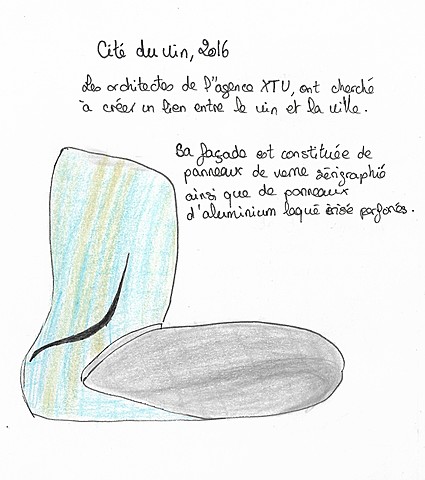 Cité du vin, 2016
Les architectes de l'agence XTU, ont cherché
à créer un lien entre le vin et la ville.
Sa façade est constituée de
panneaux de verre sérigraphié
ainsi que de panneaux
d'aluminium laqué irisé perforés.